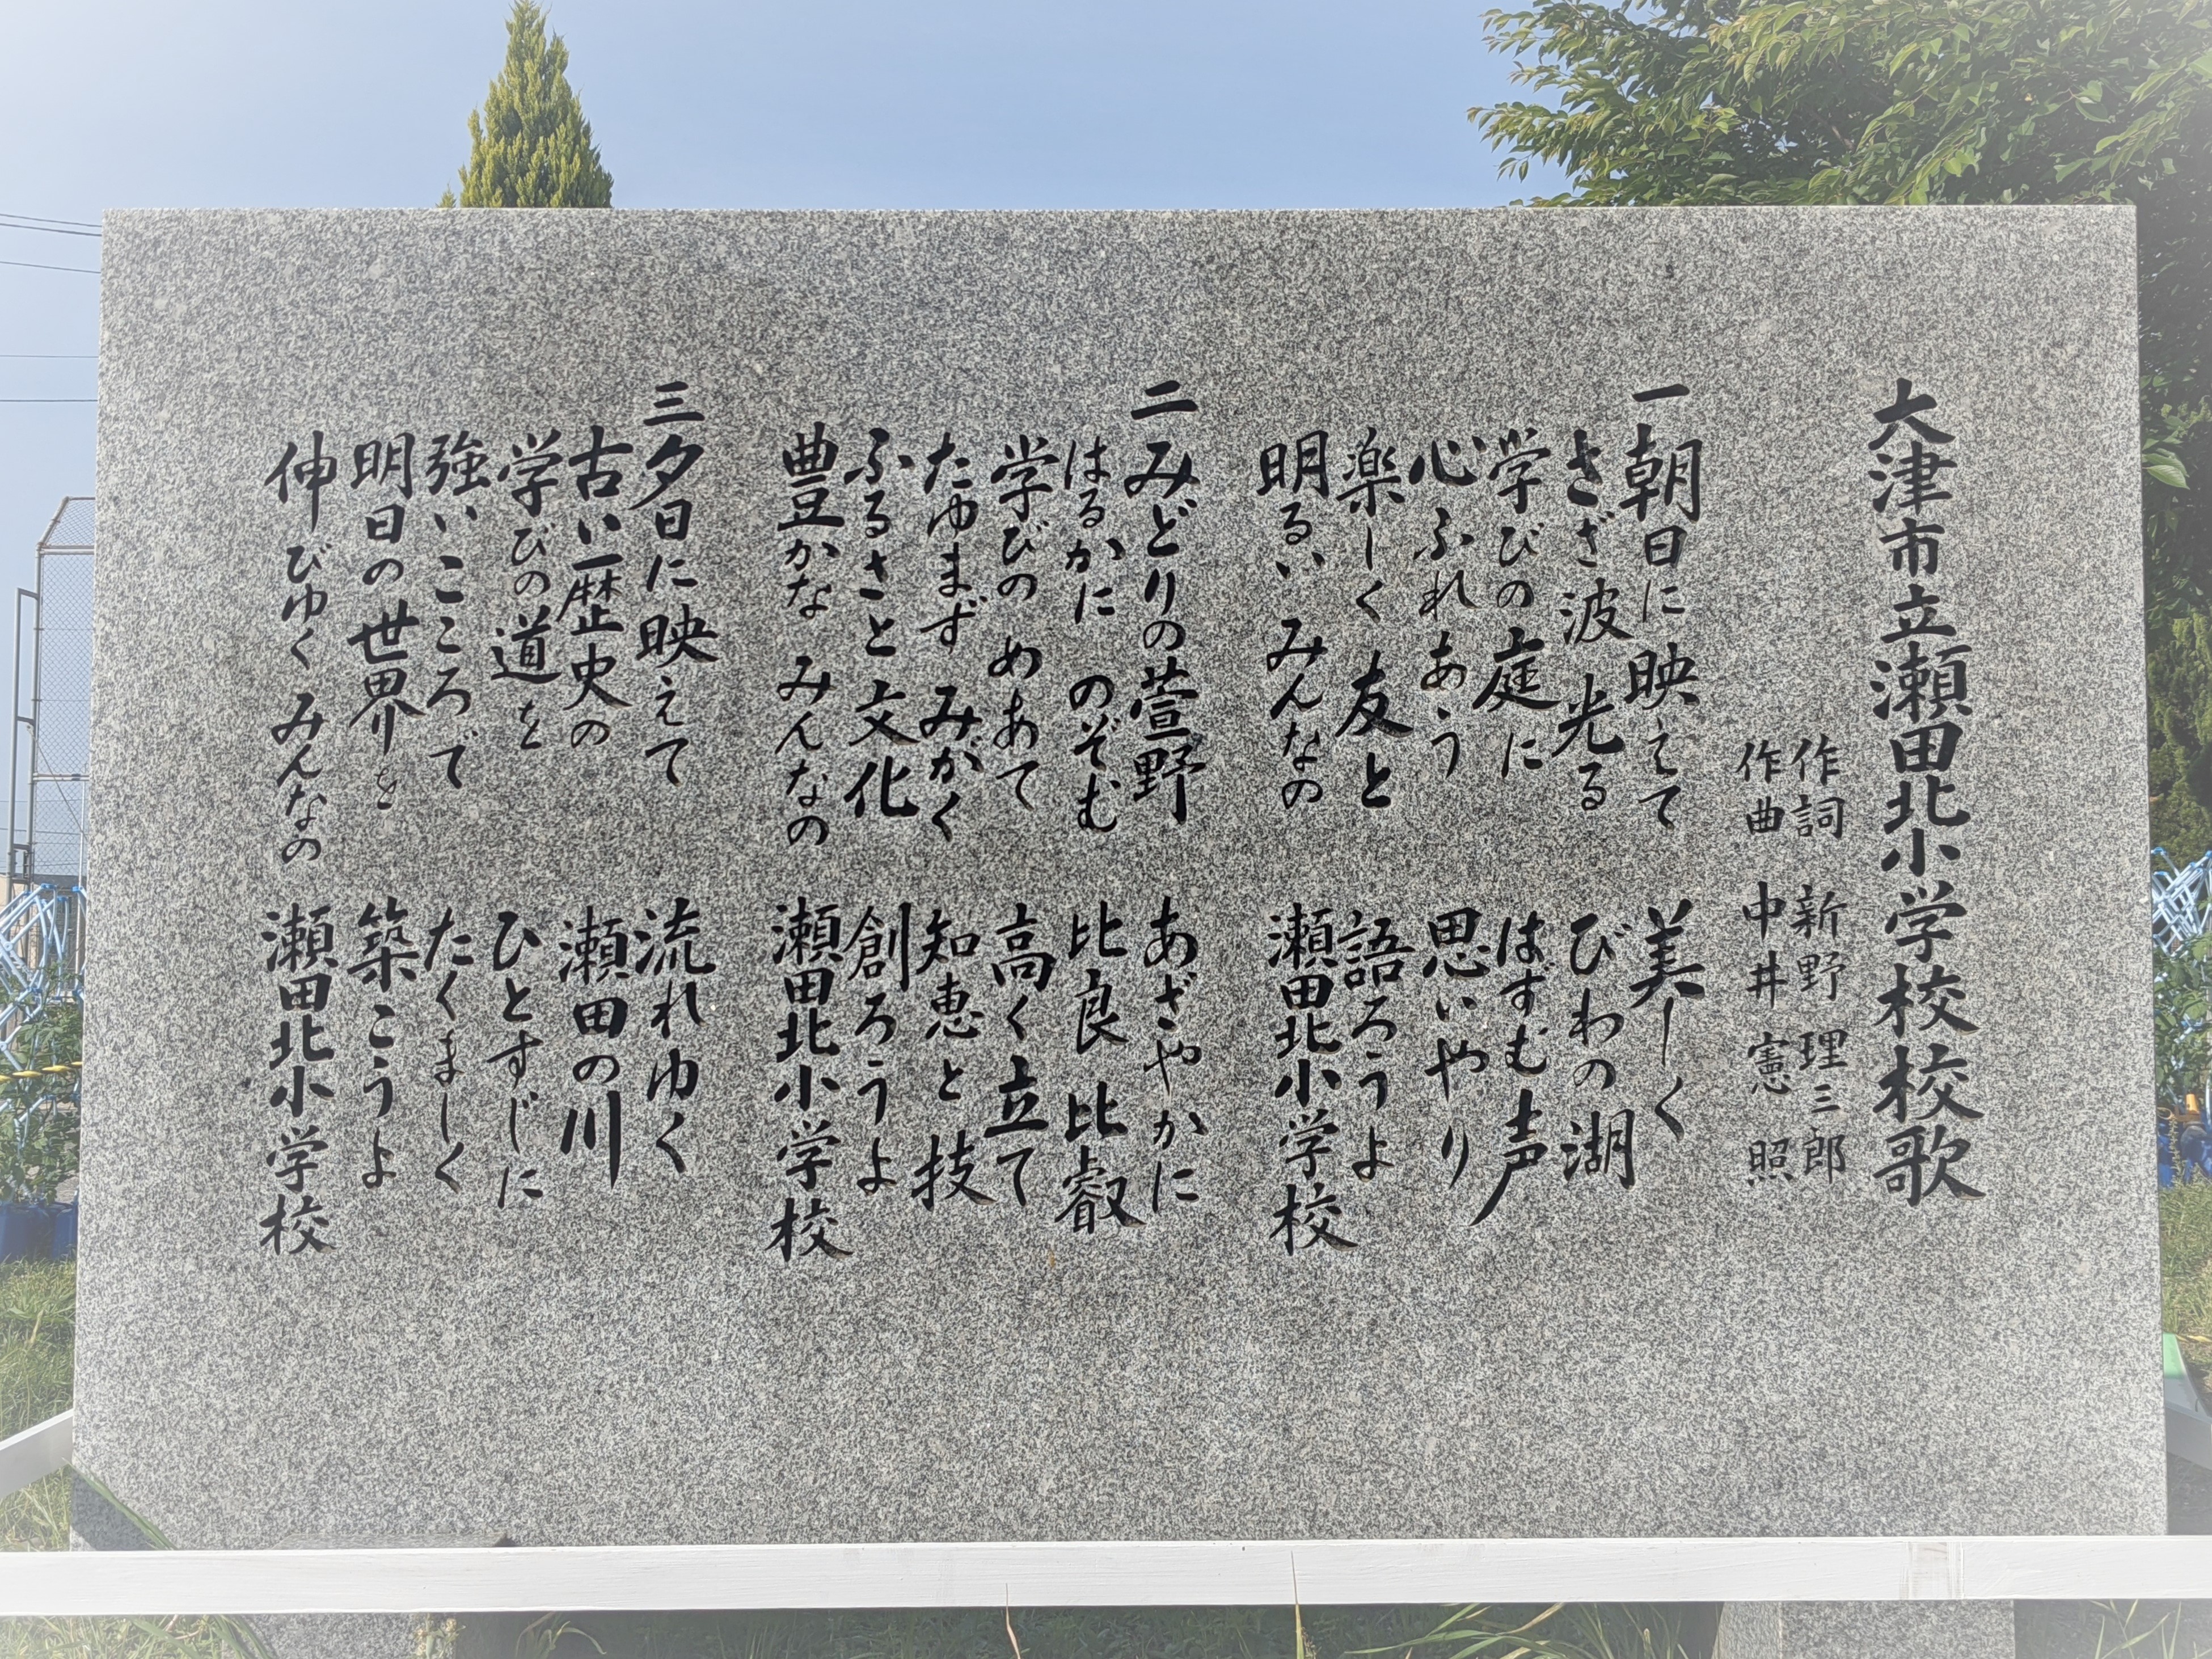 大津市立瀬田北小学校校歌
作詞 新野理三郎
作曲 中井憲照
一 朝日に映えて 美しく
さざ波光る びわの湖
学びの庭に はずむ声
心ふれあう 思いやり
楽しく友と 語ろうよ
明るいみんなの 瀬田北小学校
二 みどりの萱野 あざやかに
はるかにのぞむ 比良比叡
学びのめあて 高く立て
たゆまずみがく 知恵と技
ふるさと文化 創ろうよ
豊かなみんなの 瀬田北小学校
三 夕日に映えて 流れゆく
古い歴史の 瀬田の川
学びの道を ひとすじに
強いこころで たくましく
明日の世界を 築こうよ
伸びゆくみんなの 瀬田北小学校